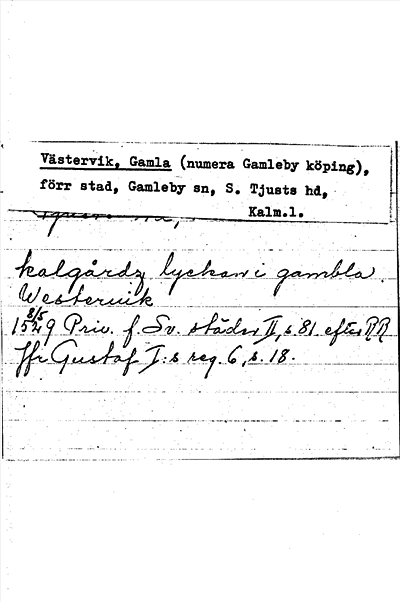 Västervik, Gamla (numera Gamleby köping),
förr stad, Gamleby sn, S. Tjusts hd,
Kalm.l.
kalgårdz lyckan i gambla
Westeruik
8/5
1529 Priv. f. Sv. städer II, s. 81 efter RR
Jfr Gustaf I:s reg. 6, s. 18.